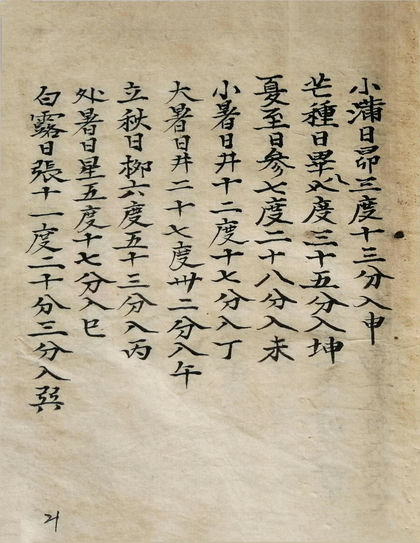 小滿日昴三度十三分入申
芒種日畢八度三十五分入坤
夏至日參七度二十八分入未
小暑日井十二度十七分入丁
大暑日井二十七度卅二分入午
立秋日柳六度五十三分入丙
处暑日星五度十七分入巳
白露日張十一度二十分三分入巽
21